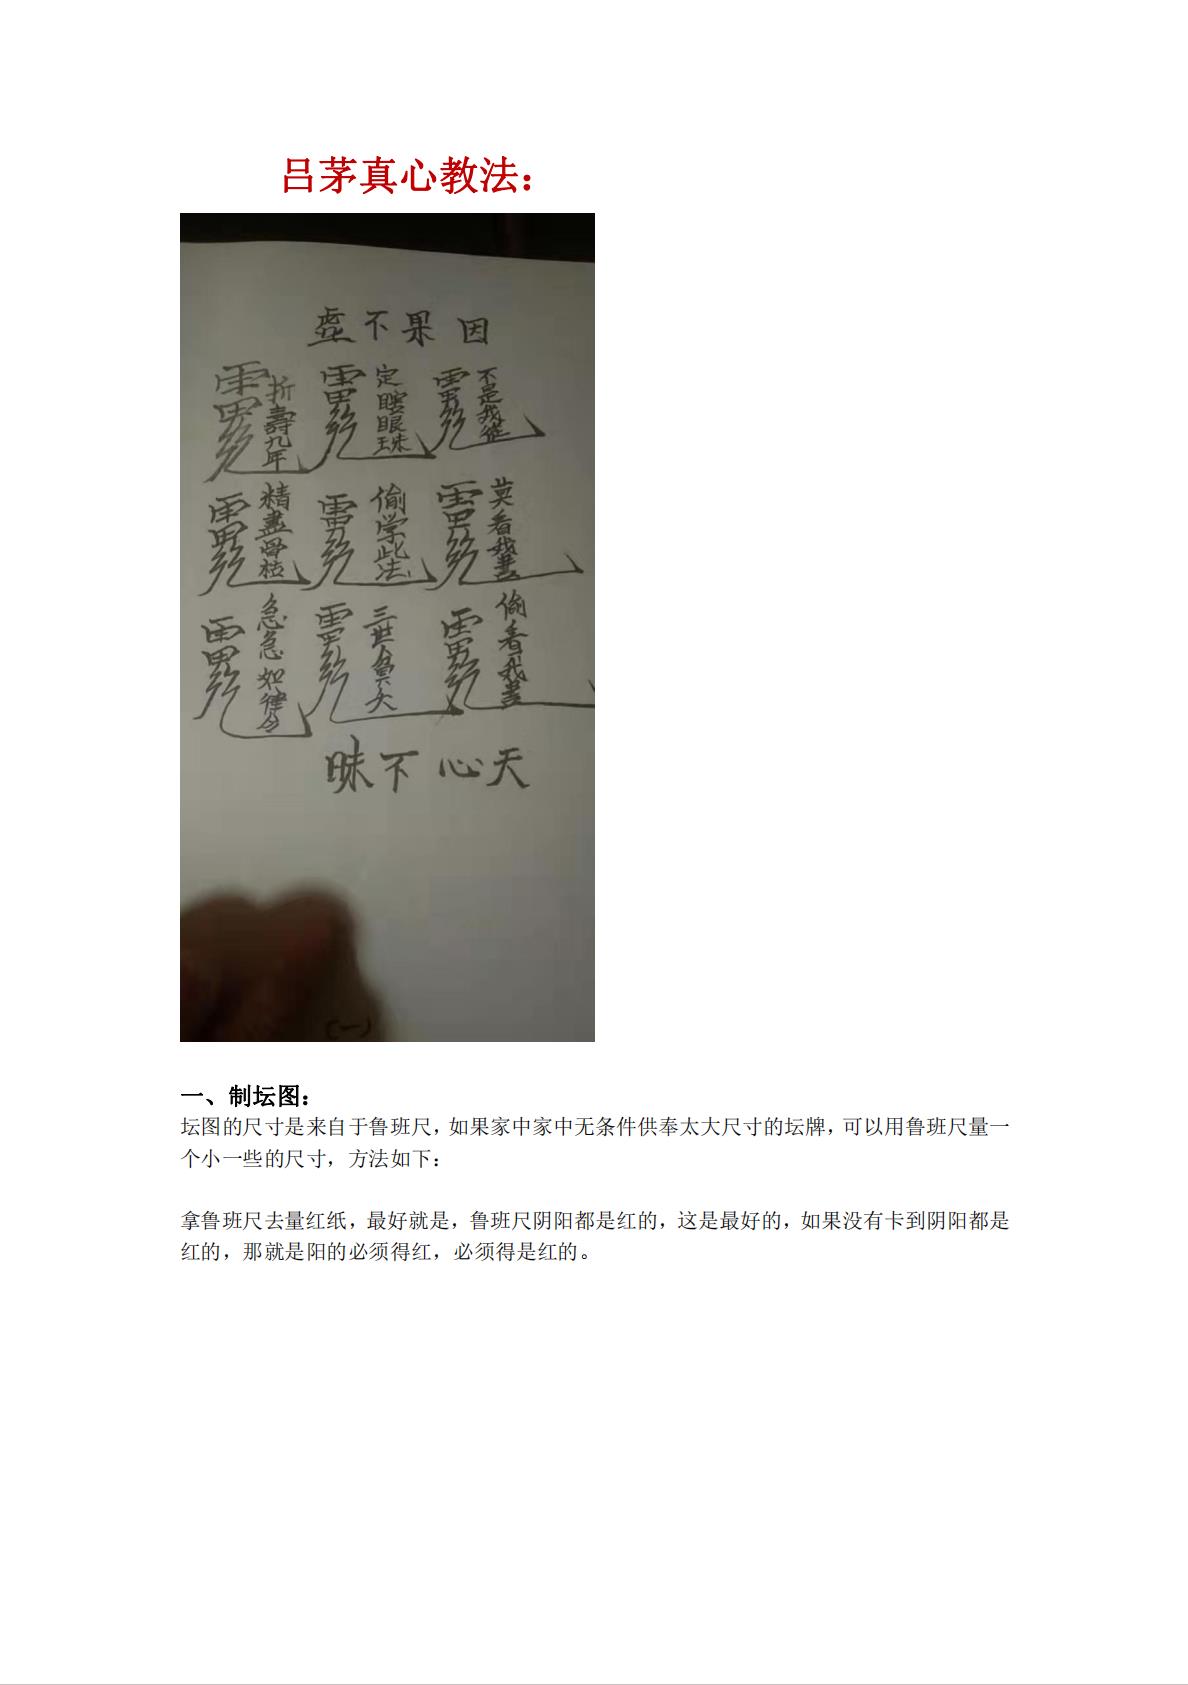 吕茅真心教法：
因果不虚
不是我徒
定瞎眼珠
折壽九年
莫看我書
偷学此法
精盡骨枯
偷看我書
三世
急急如律令
天心不昧
(一)
一、制坛图：
坛图的尺寸是来自于鲁班尺，如果家中家中无条件供奉太大尺寸的坛牌，可以用鲁班尺量一
个小一些的尺寸，方法如下：
拿鲁班尺去量红纸，最好就是，鲁班尺阴阳都是红的，这是最好的，如果没有卡到阴阳都是
红的，那就是阳的必须得红，必须得是红的。